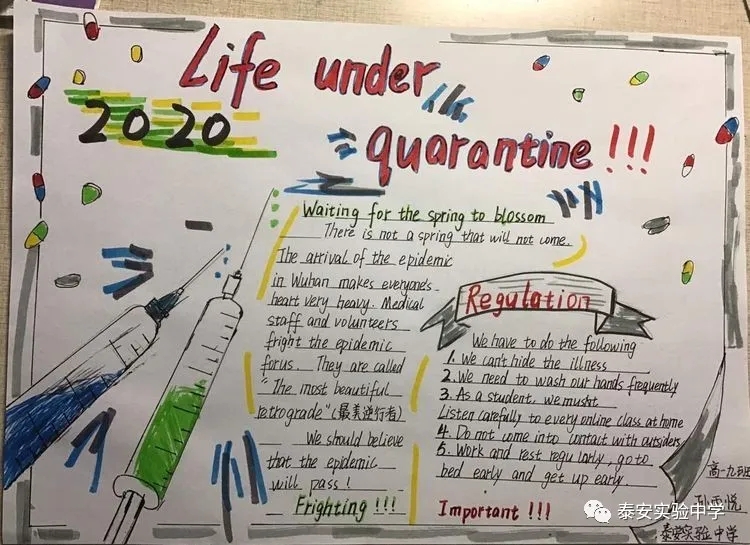 Life under
2020
quarantine !!!
Waiting for the spring to blossom
There is not a spring that will not come.
The arrival of the epidemic
in Wuhan makes everyone's
heart very heavy. Medical
staff and volunteers
fright the epidemic
forus. They are called
"The most beautiful
retrograde"(最美逆行者)
We should believe
that the epidemic
will pass!
Frighting !!!
Regulation
We have to do the following
1. We can't hide the illness
2. We need to wash our hands frequently
3. As a student, we musht
Listen carefully to every online class at home
4. Do not come into contact with outsiders
5. Work and rest regu larly, go to
bed early and get up early
Important !!!
高一九班
孙雪悦
泰安实验中学
泰安实验中学